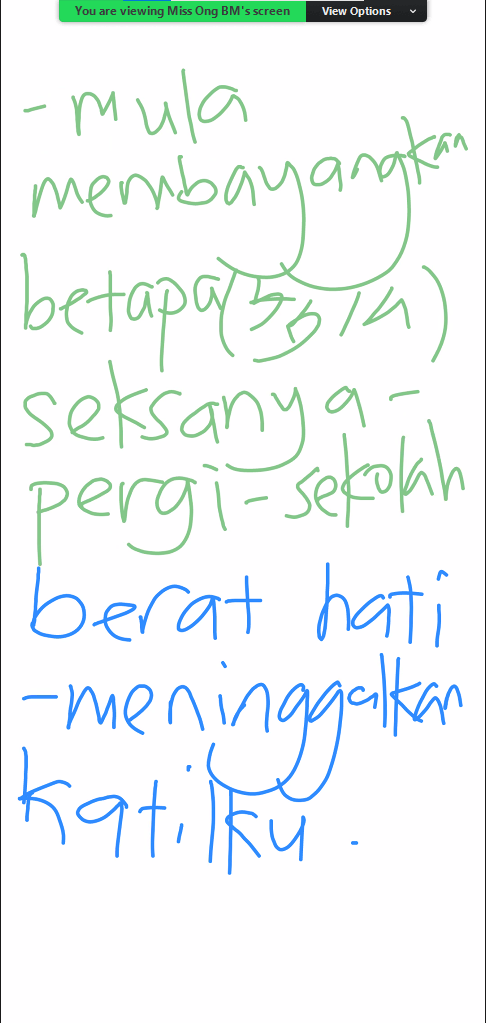 You are viewing Miss Ong BM's screen View Options
- mula
membayangkan
betapa(33/4)
seksanya -
pergi - sekolah
berat hati
- meninggalkan
katilku .